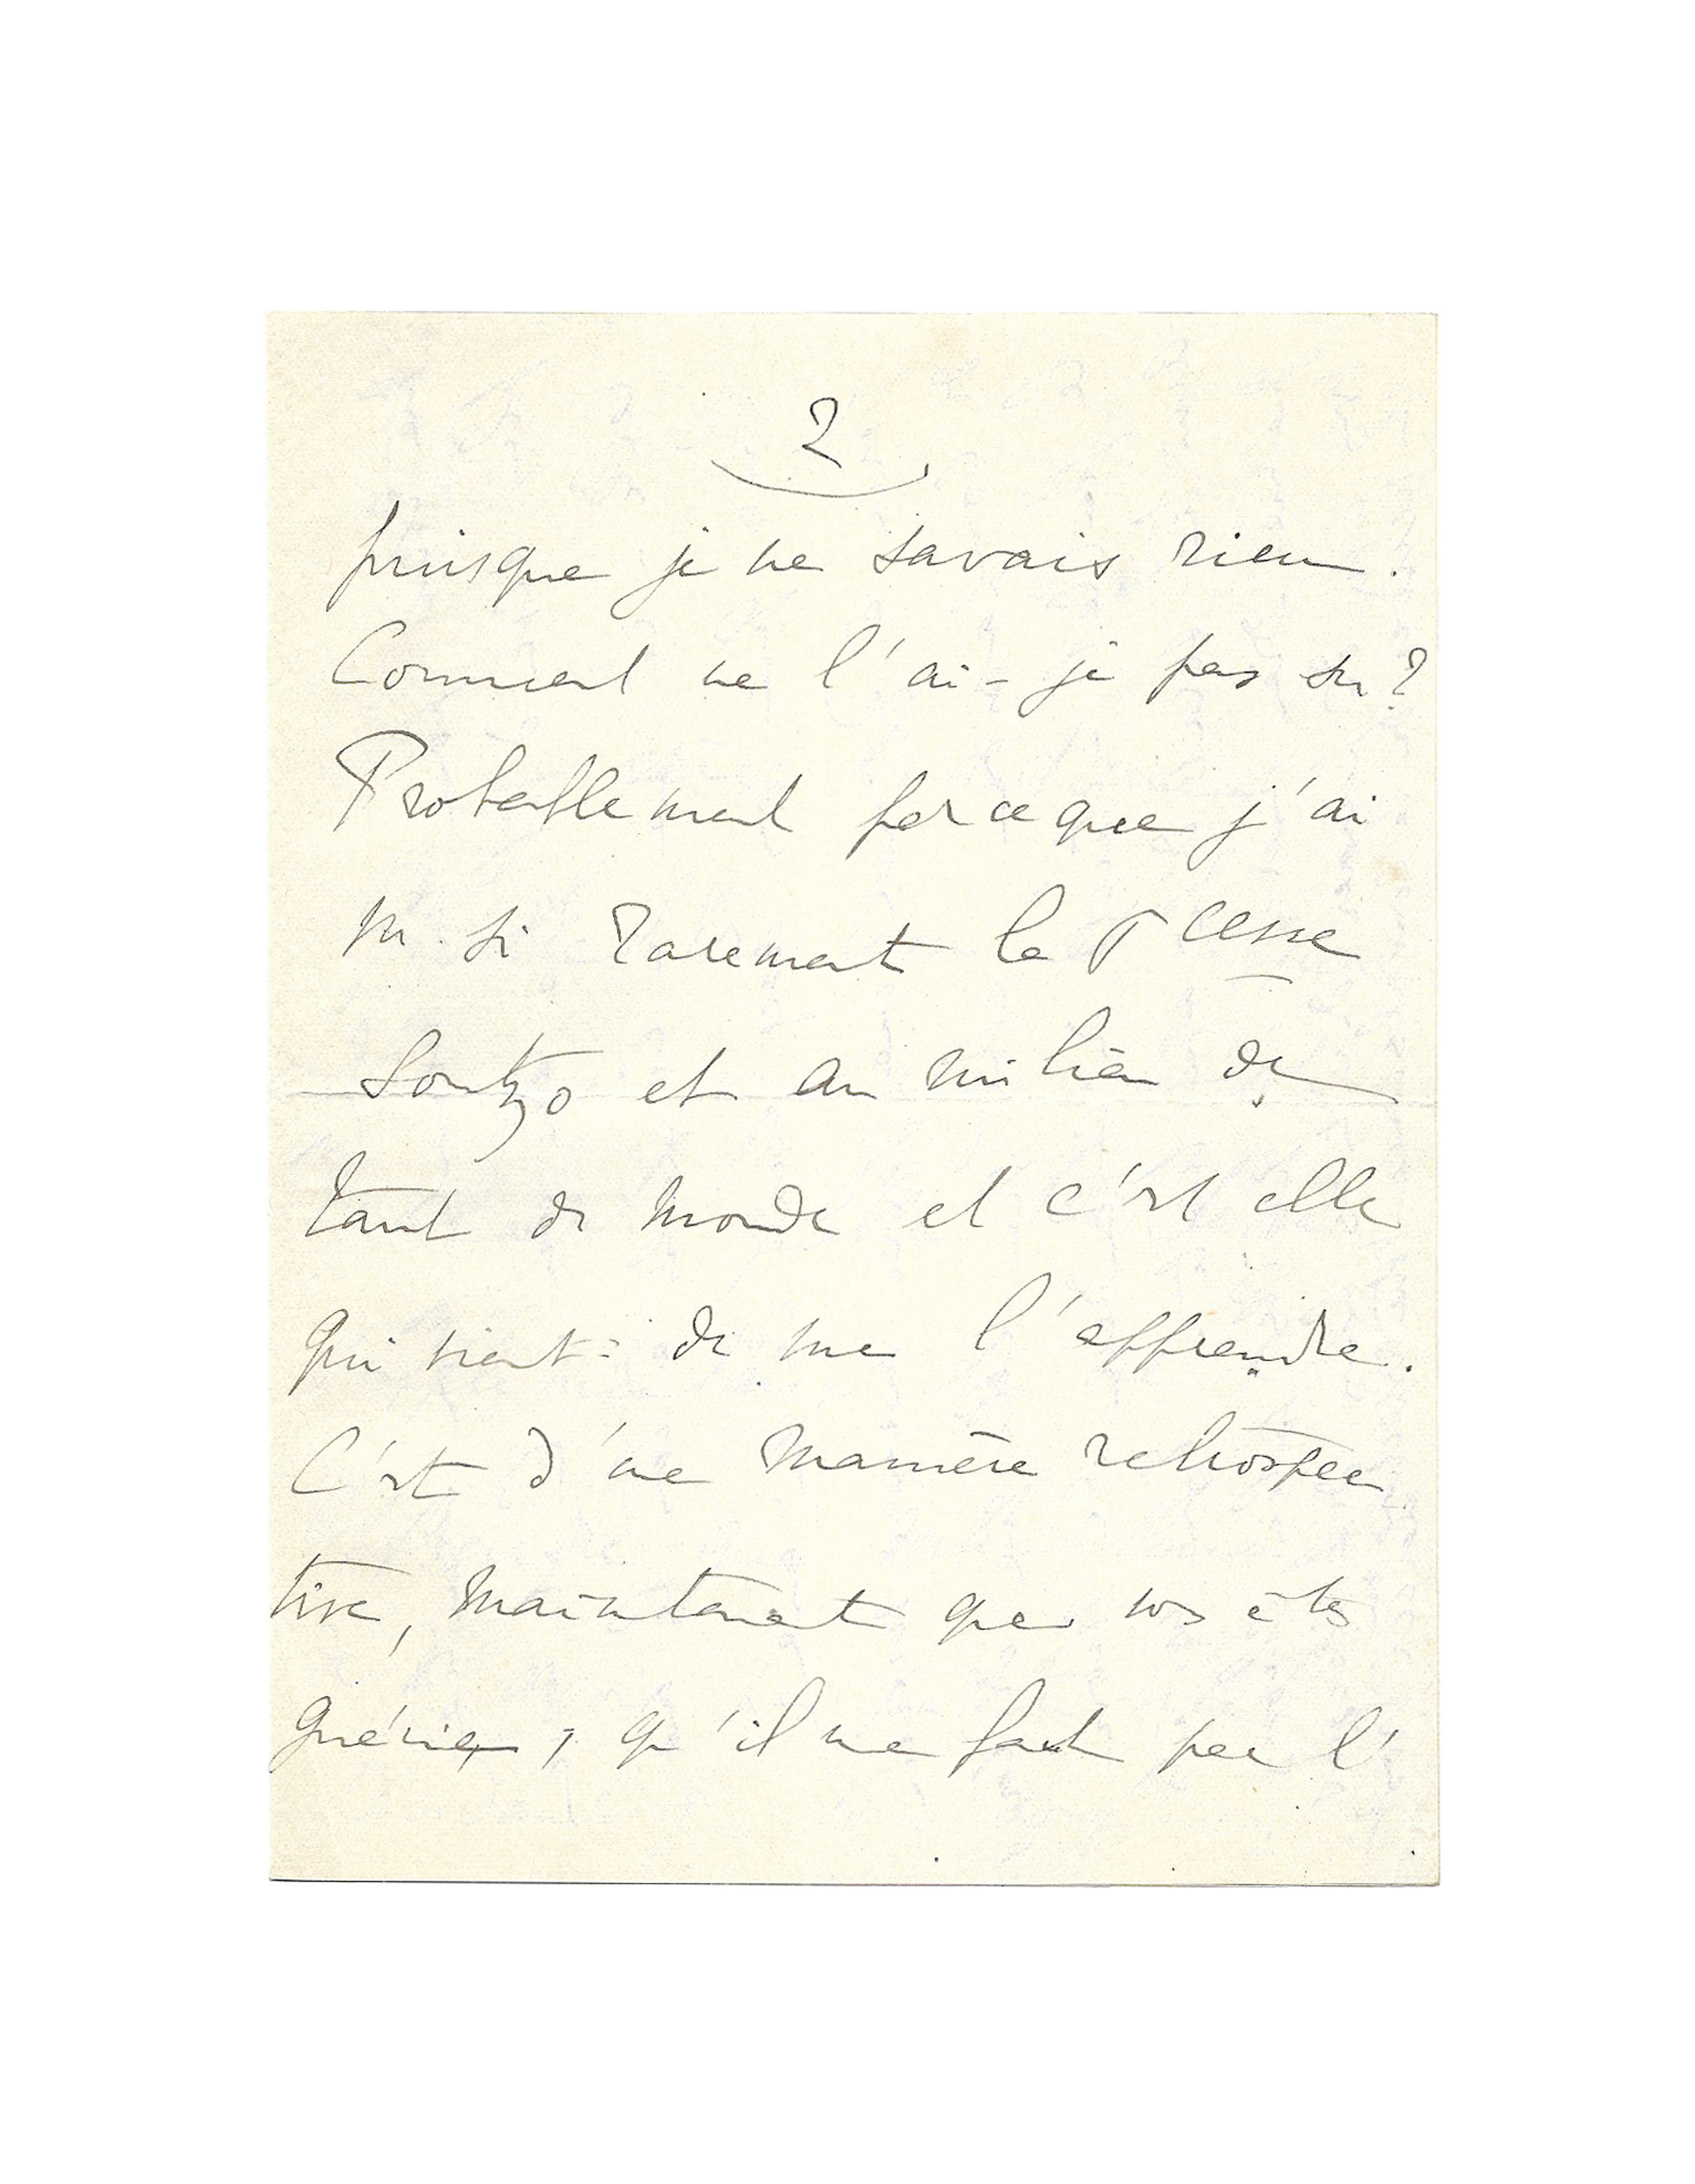 2
puisque je ne savais rien.
Comment ne l'ai-je pas su?
Probablement parce que j'ai
vu si rarement la Pcesse
Soutzo et au milieu de
tant de monde et c'est elle
qui vient de me l'apprendre.
C'est d'une manière rétrospec
tive, maintenant que vs êtes
guérie, qu'il me faut par l'